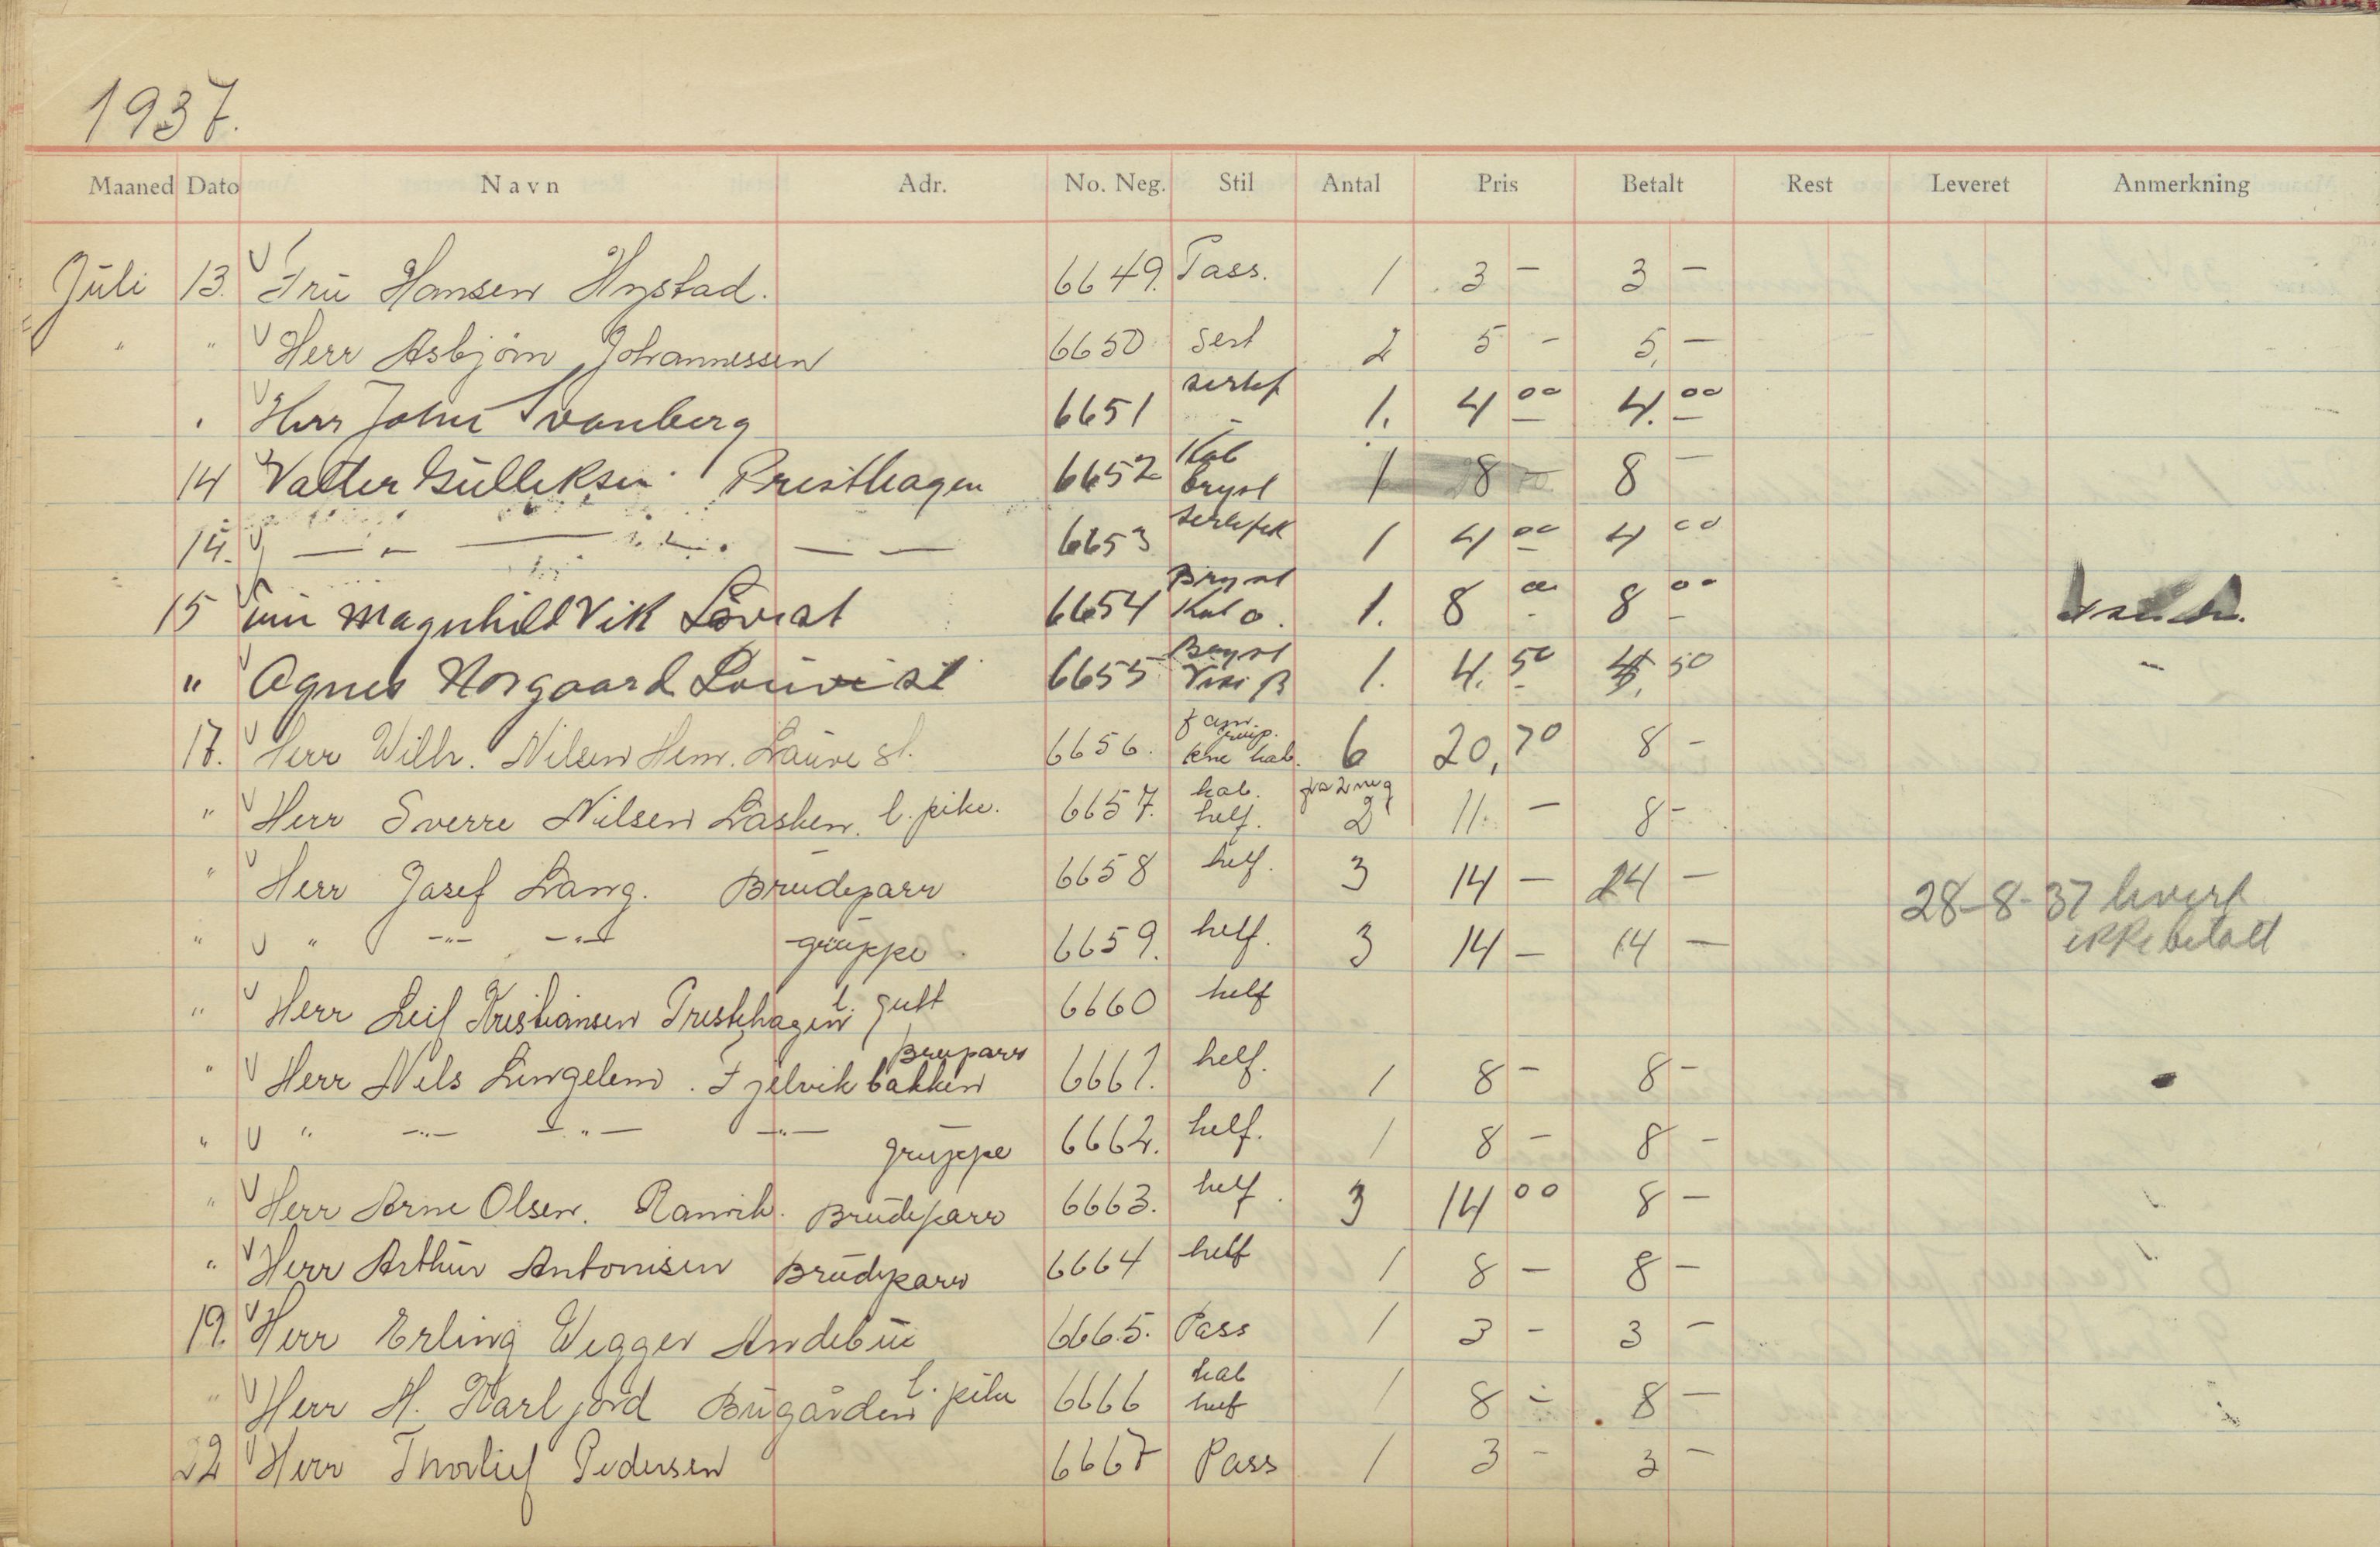 1937.
Maaned Dato Navn Adr. No. Neg. Stil Antal Pris Betalt Rest Leveret Anmerkning
Juli 13. Fru Hansen Hystad. 6649. Pass. 1 3 — 3 —
" " Herr Asbjørn Johannessen 6650 Sert 2 5 — 5, —
Herr John Svanberg 6651 1. 4 00 4. 00
14 Valter Gulleksen Presthagen 6652 Kab Bryst 1 8 8 —
14. — " — — — — 6653 1 4 00 4 00
15 Magnhild Vik 6654 Bryst Kab o. 1. 8 00 8 00
" Agnes Norgaard 6655 Bryst Visi B 1. 4. 50 4, 50
17. Herr Wilh. Nilsen Hem. 6656. fam. grup. kne kab. 6 20, 70 8 —
" Herr Sverre Nilsen Låsken. l. pike. 6657. kab. helf. fra 2 neg 2 11. — 8 —
" Herr Josef Lang. Brudeparr 6658 helf. 3 14 — 14 —
28-8-37 levert
" " —"— —"— gruppe 6659. helf. 3 14 — 14 — ikke betalt
" Herr Leif Kristiansen Prestehagen l. gutt 6660 helf
Bruparr
" Herr Nils Lingelem. Fjelvikbakken 6661. helf. 1 8 — 8 —
" " —"— —"— —"— gruppe 6662. helf. 1 8 — 8 —
" Herr Arne Olsen. Ranvik. Brudeparr 6663. helf. 3 14 00 8 —
" Herr Arthur Antonisen Brudeparr 6664 helf 1 8 — 8 —
19. Herr Erling Wegger Andebu 6665. Pass 1 3 — 3 —
" Herr H. Karljord Bugården l. pike 6666 kab helf 1 8 — 8 —
22 Herr Thorlief Pedersen 6667 Pass 1 3 — 3 —